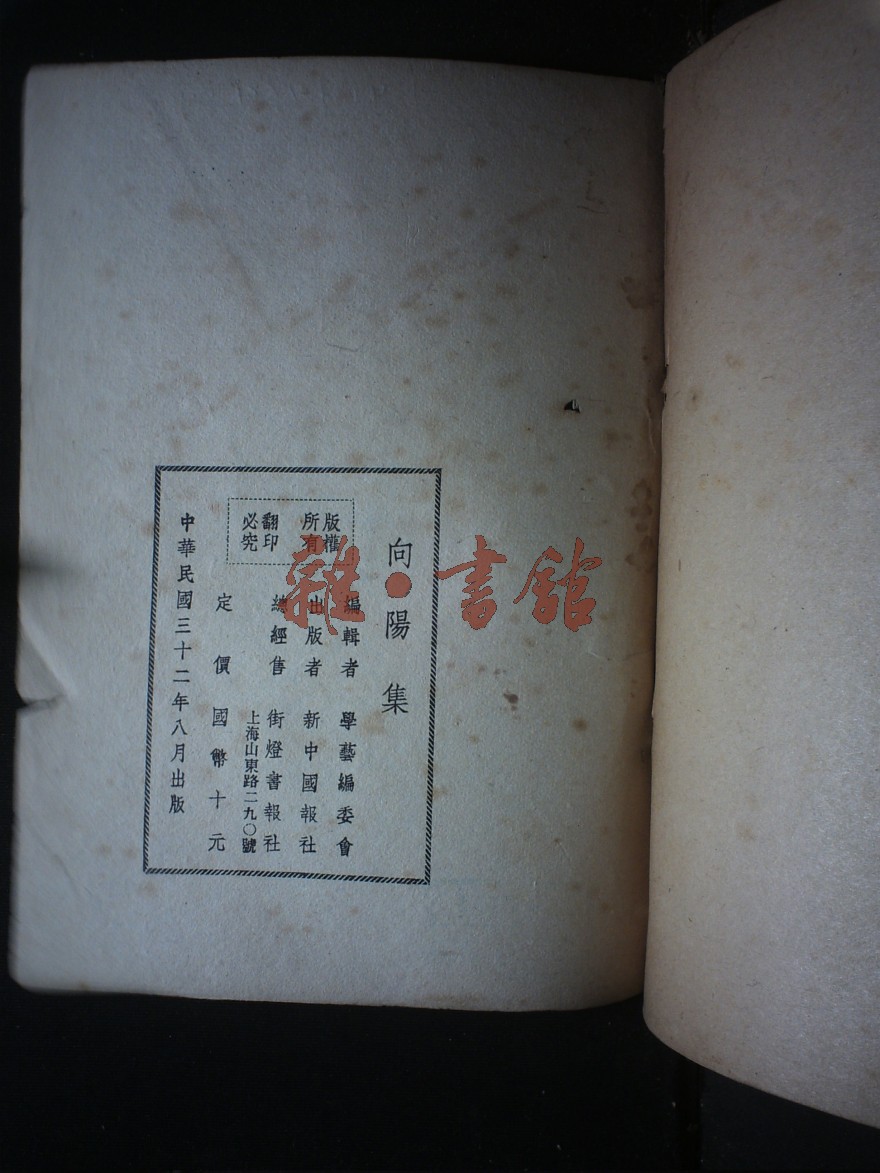 向陽集
版權所有
翻印必究
編輯者　學藝編委會
出版者　新中國報社
總經售　街燈書報社
上海山東路二九〇號
定價國幣十元
中華民國三十二年八月出版
雜·書館